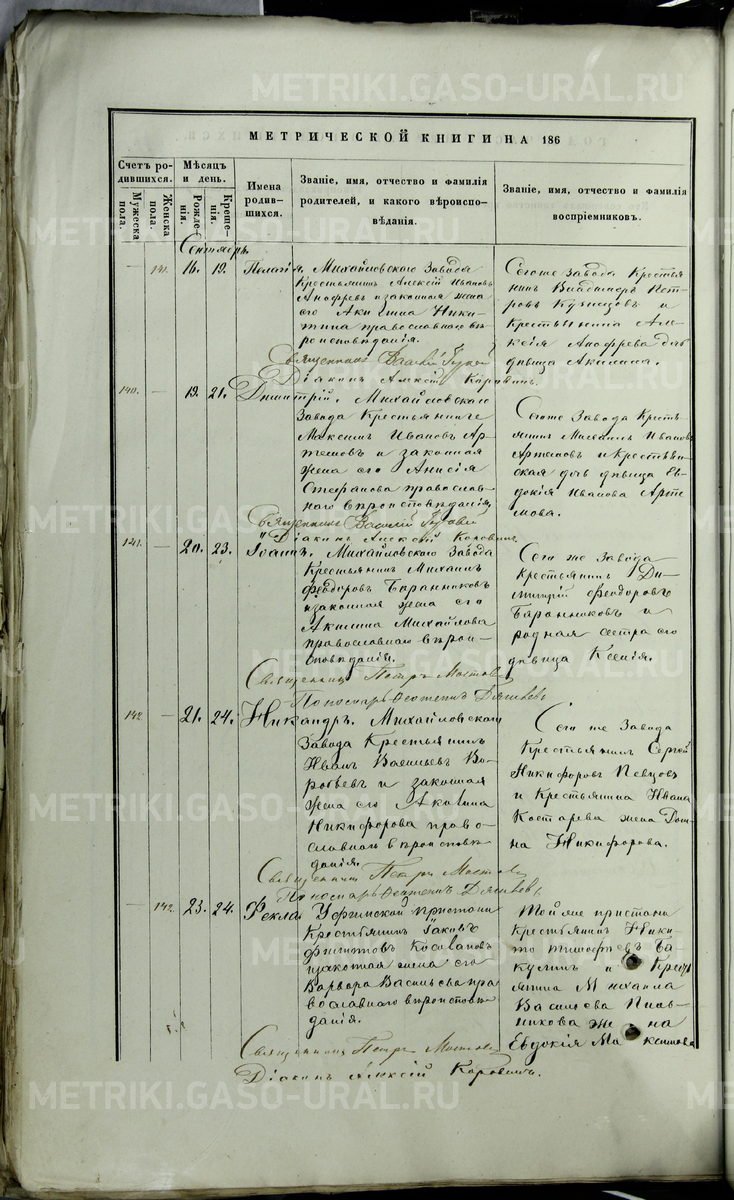 МЕТРИЧЕСКОЙ КНИГИ НА 186
Счетъ ро-
дившихся.
Мужеска
пола.
Женска
пола.
Мѣсяцъ
и день.
Рожде-
нія.
Креще-
нія.
Имена
родив-
шихся.
Званіе, имя, отчество и фамилія
родителей, и какого вѣроиспо-
вѣданія.
Званіе, имя, отчество и фамилія
воспріемниковъ.
Сентябрь.
— 141. 16. 19. Пелагія. Михайловскаго Завода
Крестьянинъ Алексѣй Ивановъ
Ануфревъ и законная жена
его Акилина Ники-
тина православнаго вѣ-
роисповѣданія.
Священникъ Василій
Діаконъ Алексѣй Коровинъ.
Сегоже Завода Крестья
нинъ Владимиръ Пет-
ровъ Кузнецовъ и
Крестьянина Але-
ксѣя Ануфрева дочь
дѣвица Акилина.
140. — 19. 21. Димитрій. Михайловскаго
Завода Крестьянинъ
Максимъ Ивановъ Ар-
темовъ и законная
жена его Анисія
Стефанова православ-
наго вѣроисповѣданія
Священникъ Василій
Діаконъ Алексѣй Коровинъ
Сегоже Завода Кресть-
янинъ Михаилъ Ивановъ
Артемовъ и Крестьян-
ская дочь дѣвица Ев-
докія Иванова Арте-
мова.
141. — 20. 23. Іоаннъ. Михайловскаго Завода
Крестьянинъ Михаилъ
Феодоровъ Баранниковъ
и законная жена его
Акилина Михайлова
православнаго вѣрои-
сповѣданія.
Священникъ Петръ
Сего же Завода
Крестьянинъ Ди-
митрій Феодоровъ
Баранниковъ и
родная сестра его
дѣвица Ксенія.
142. — 21. 24. Никандръ. Михайловскаго
Завода Крестьянинъ
Иванъ Васильевъ Во-
робьевъ и законная
жена его Акилина
Никифорова право-
славнаго вѣроисповѣ-
данія.
Священникъ Петръ
Сего же Завода
Крестьянинъ Сергѣй
Никифоровъ Певцовъ
и Крестьянина Ивана
Костарева жена
Никифорова.
— 142. 23. 24. Фекла. Уфимской пристани
Крестьянинъ Іаковъ
и законная жена его
Варвара Васильева пра
вославнаго вѣроисповѣ-
данія.
Священникъ Петръ
Діаконъ Алексѣй Коровинъ.
Той же пристани
Крестьянинъ Ники-
та Тимофеевъ Ба-
кулинъ и Кресть
янина Михаила
Васильева
жена
Евдокія Максимова
METRIKI.GASO-URAL.RU